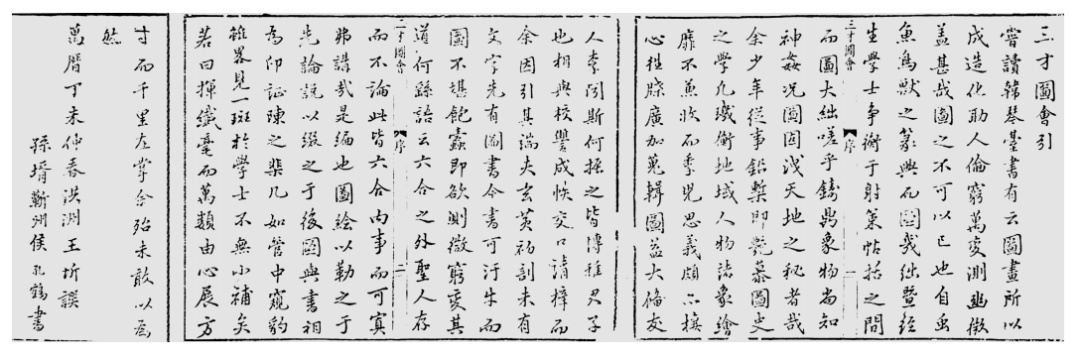 三才圖會引
嘗讀韓琴臺書有云圖畫所以
成造化助人倫窮萬變測幽微
蓋甚哉圖之不可以已也自虫
魚鳥獸之篆興而圖幾絀暨經
生學士爭衡于射策帖括之間
三才圖會 序 一
而圖大絀嗟乎鑄鼎象物尚知
神姦況圖固洩天地之秘者哉
余少年從事鉛槧即艷慕圖史
之學凡璣衡地域人物諸象繪
靡不兼收而季兒思義頗亦棲
心往牒廣加蒐輯圖益大備友
人李閏斯何振之皆博雅君子
也相與校讐成帙交口請梓而
余因引其端夫玄黃初剖未有
文字先有圖書今書可汗牛而
圖不堪飽蠹即欲測微窮變其
道何繇語云六合之外聖人存
三才圖會 序 二
而不論此皆六合內事而可寘
弗講哉是編也圖繪以勒之于
先論說以綴之于後圖與書相
為印證陳之棐几如管中窺豹
雖畧見一斑於學士不無小補矣
若曰揮纖毫而萬類由心展方
寸而千里在掌余殆未敢以為
然
萬曆丁未仲春洪洲王圻譔
孫壻蘄州侯孔鶴書